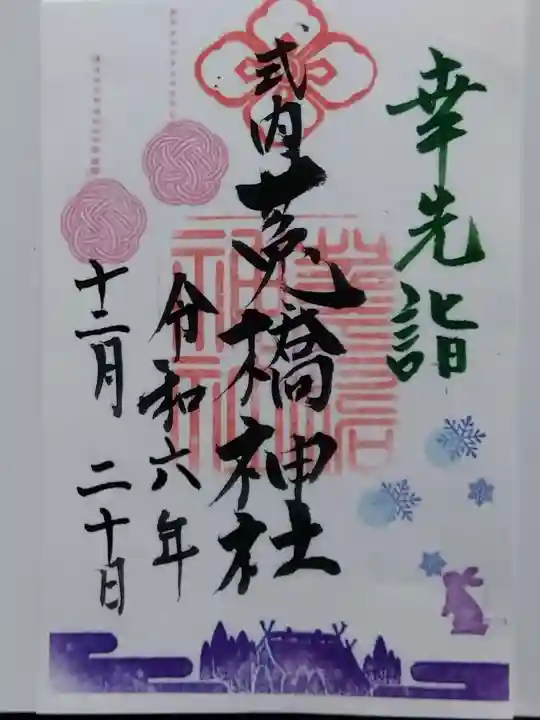 幸先詣
式内 菟橋神社
令和六年
十二月 二十日